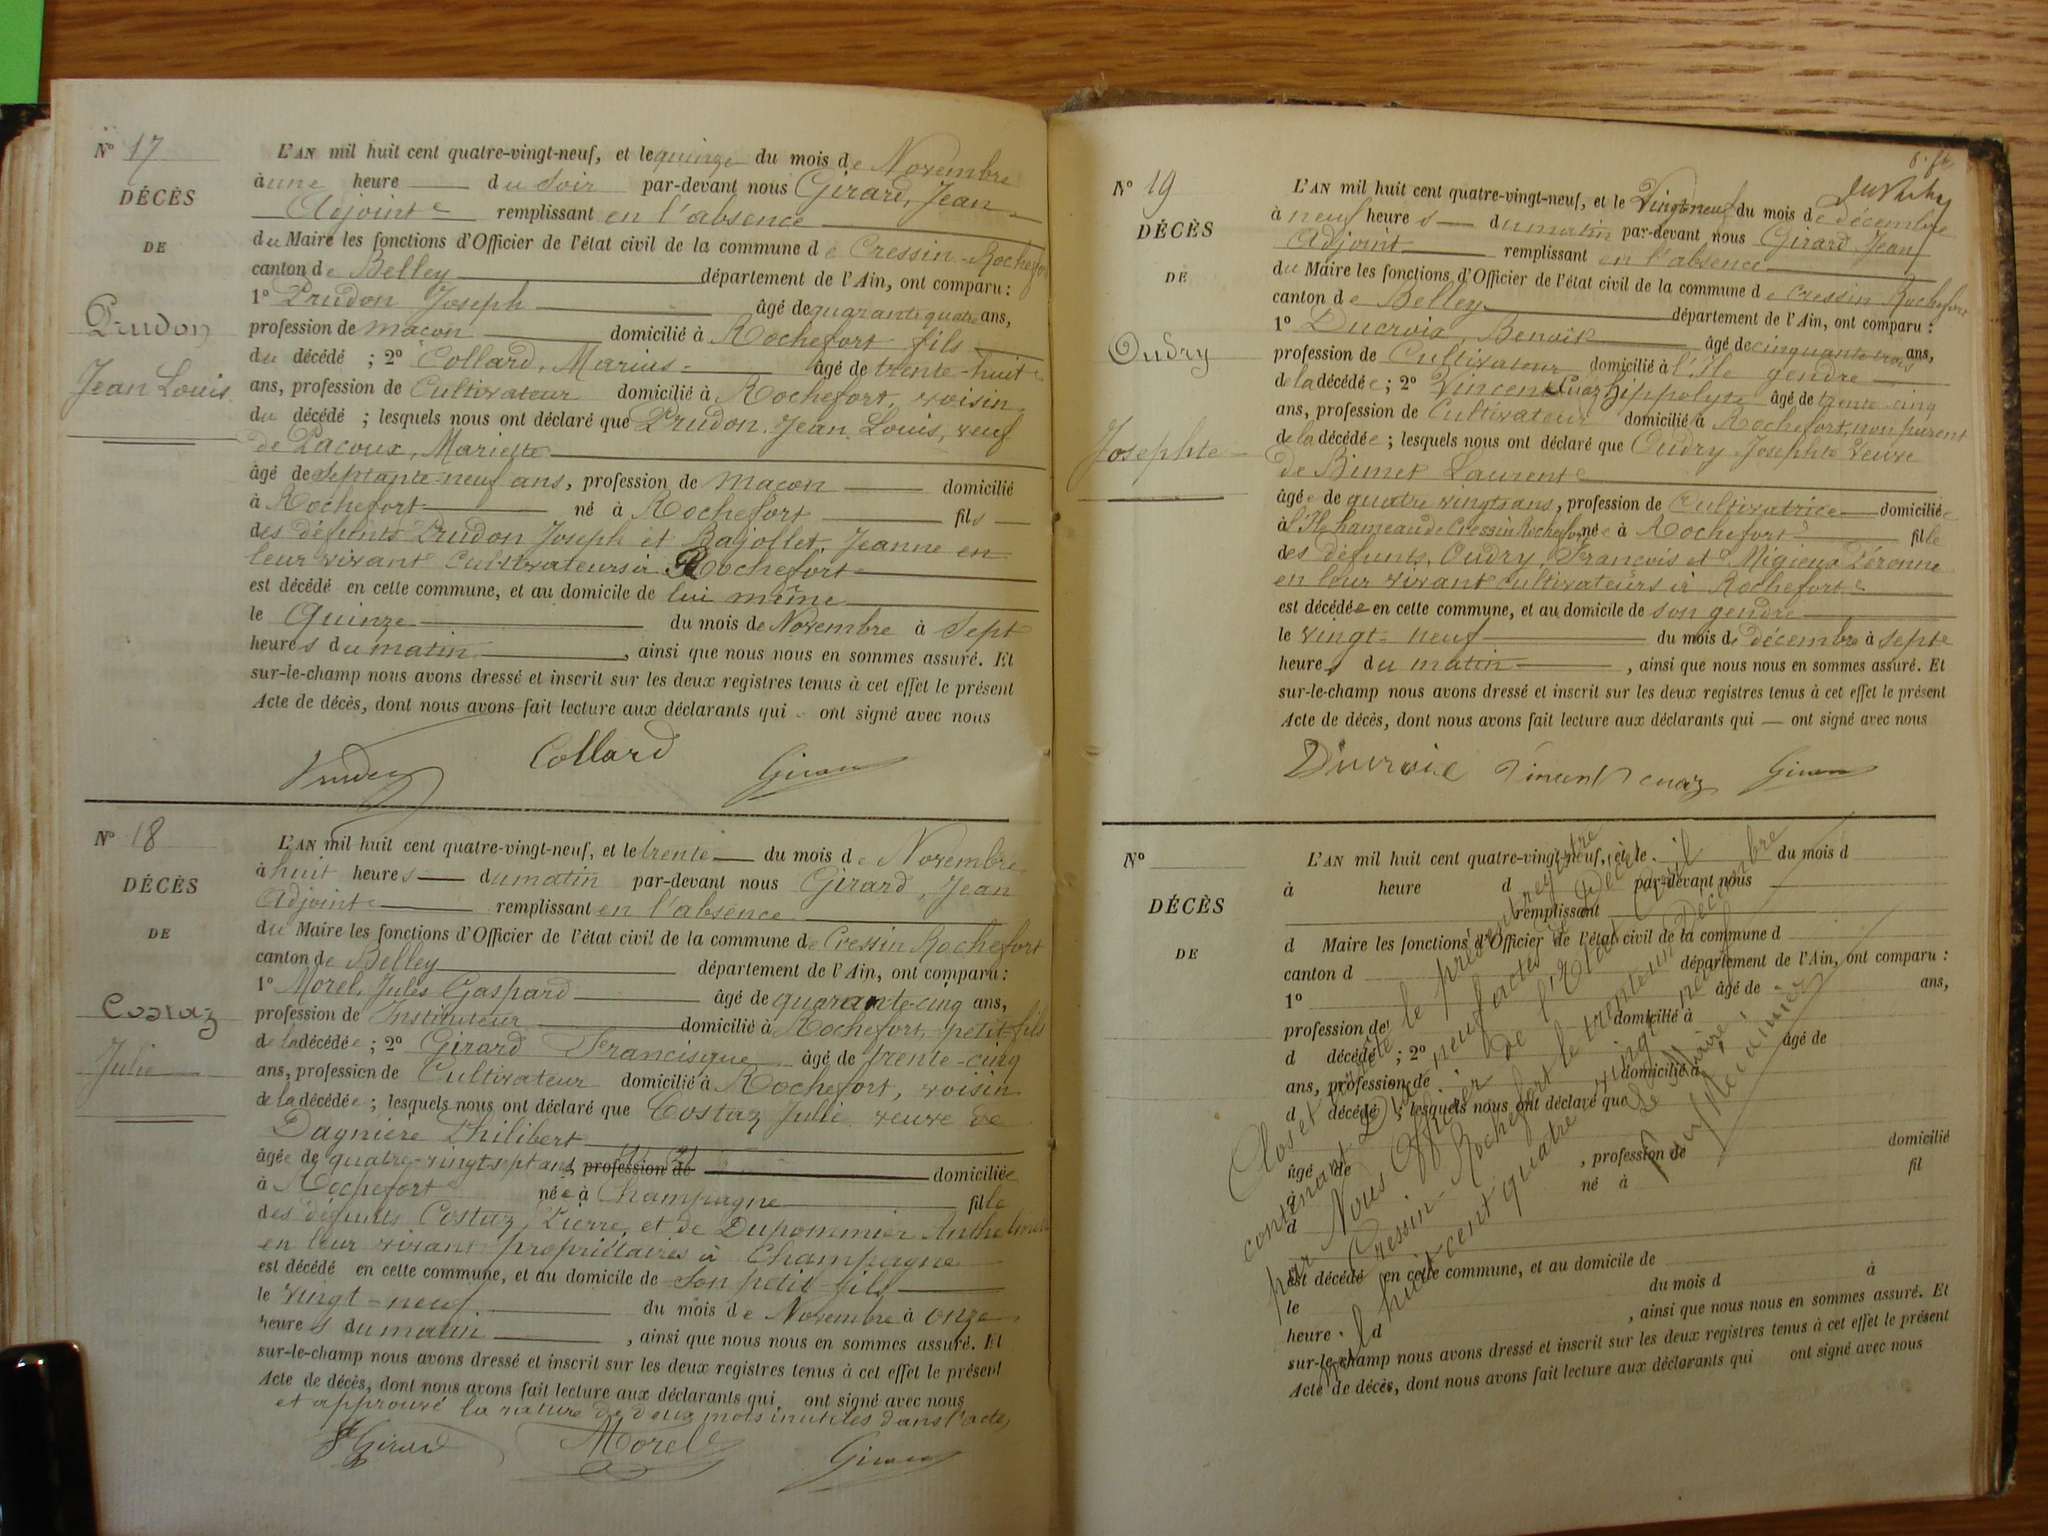 N° 17
DÉCÈS
DE
Prudon
Jean Louis
L'AN mil huit cent quatre-vingt-neuf, et le quinze du mois de Novembre
à une heure du soir par-devant nous Girard, Jean
Adjoint remplissant en l'absence
du Maire les fonctions d'Officier de l'état civil de la commune de Cressin-Rochefort
canton de Belley département de l'Ain, ont comparu :
1° Prudon Joseph âgé de quarante quatre ans,
profession de macon domicilié à Rochefort fils
du décédé ; 2° Collard, Marius âgé de trente-huit
ans, profession de Cultivateur domicilié à Rochefort, voisin
du décédé ; lesquels nous ont déclaré que Prudon, Jean Louis, veuf
de Pacoux, Mariette
âgé de septante-neuf ans, profession de macon domicilié
à Rochefort né à Rochefort fils
des défunts Prudon Joseph et Bajollet, Jeanne en
leur vivant Cultivateurs à Rochefort
est décédé en cette commune, et au domicile de lui même
le Quinze du mois de Novembre à Sept
heures du matin, ainsi que nous nous en sommes assuré. Et
sur-le-champ nous avons dressé et inscrit sur les deux registres tenus à cet effet le présent
Acte de décès, dont nous avons fait lecture aux déclarants qui ont signé avec nous
Prudon Collard Girard
N° 18
DÉCÈS
DE
Costaz
Julie
L'AN mil huit cent quatre-vingt-neuf, et le trente du mois de Novembre
à huit heures du matin par-devant nous Girard, Jean
Adjoint remplissant en l'absence
du Maire les fonctions d'Officier de l'état civil de la commune de Cressin Rochefort
canton de Belley département de l'Ain, ont comparu :
1° Morel, Jules Gaspard âgé de quarante-cinq ans,
profession de Instituteur domicilié à Rochefort, petit-fils
de la décédée ; 2° Girard Francisque âgé de trente-cinq
ans, profession de Cultivateur domicilié à Rochefort, voisin
de la décédée ; lesquels nous ont déclaré que Costaz Julie veuve de
Dagnière Philibert
âgée de quatre-vingt sept ans, profession de domiciliée
à Rochefort née à Champagne fille
des défunts Costaz, Pierre, et de Dupommier Anthelmette
en leur vivant propriétaires à Champagne
est décédé en cette commune, et au domicile de son petit-fils
le vingt-neuf du mois de Novembre à onze
heures du matin, ainsi que nous nous en sommes assuré. Et
sur-le-champ nous avons dressé et inscrit sur les deux registres tenus à cet effet le présent
Acte de décès, dont nous avons fait lecture aux déclarants qui ont signé avec nous
et approuvé la rature de deux mots inutiles dans l'acte,
F Girard Morel Girard
N° 19
DÉCÈS
DE
Oudry
Josephte
L'AN mil huit cent quatre-vingt-neuf, et le Vingt-neuf du mois de décembre
à neuf heures du matin par-devant nous Girard Jean
Adjoint remplissant en l'absence
du Maire les fonctions d'Officier de l'état civil de la commune de Cressin Rochefort
canton de Belley département de l'Ain, ont comparu :
1° Ducroix Benoît âgé de cinquante trois ans,
profession de Cultivateur domicilié à l'Ile gendre
de la décédée ; 2° Vincent Cuaz hippolyte âgé de trente-cinq
ans, profession de Cultivateur domicilié à Rochefort, non parent
de la décédée ; lesquels nous ont déclaré que Oudry Josephte Veuve
de Bimet Laurent
âgée de quatre vingts ans, profession de Cultivatrice domiciliée
à l'Ile hameau de Cressin Rochefort née à Rochefort fille
des défunts, Oudry, François et Migieux Péronne
en leur vivant cultivateurs à Rochefort
est décédée en cette commune, et au domicile de son gendre
le vingt-neuf du mois de décembre à sept
heures du matin, ainsi que nous nous en sommes assuré. Et
sur-le-champ nous avons dressé et inscrit sur les deux registres tenus à cet effet le présent
Acte de décès, dont nous avons fait lecture aux déclarants qui — ont signé avec nous
Ducroix Vincent Cuaz Girard
N°
DÉCÈS
DE
L'AN mil huit cent quatre-vingt-neuf, et le du mois d
à heure d par-devant nous
remplissant
d Maire les fonctions d'Officier de l'état civil de la commune d
canton d département de l'Ain, ont comparu :
1° âgé de ans,
profession de domicilié à
d décédé ; 2° âgé de
ans, profession de domicilié à
d décédé ; lesquels nous ont déclaré que
âgé de , profession de domicilié
à né à fil
d
est décédé en cette commune, et au domicile de
le du mois d à
heure d , ainsi que nous nous en sommes assuré. Et
sur-le-champ nous avons dressé et inscrit sur les deux registres tenus à cet effet le présent
Acte de décès, dont nous avons fait lecture aux déclarants qui ont signé avec nous
Clos et arrêté le présent registre
contenant Dix neuf actes de Décès
par Nous Officier de l'Etat Civil
Cressin-Rochefort le trente un Décembre
mil huit cent quatre vingt neuf
Le Maire,